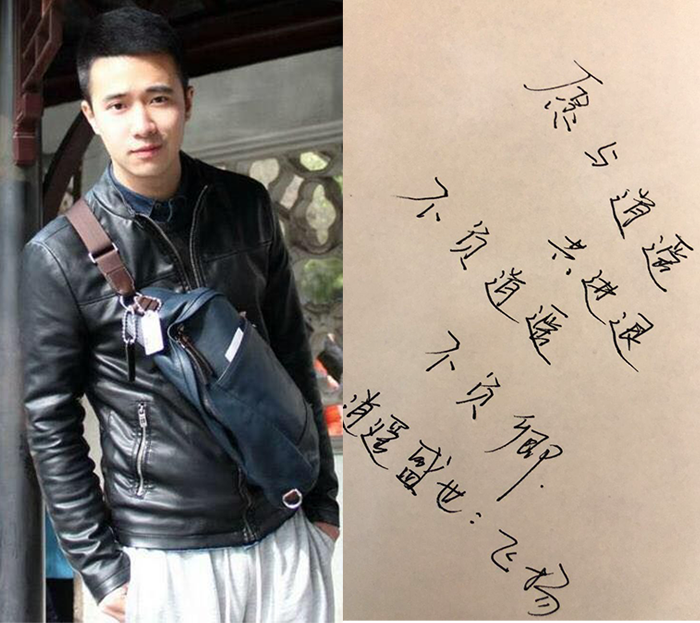 愿与逍遥
共进退
不负逍遥
不负卿.
逍遥盛世：飞扬